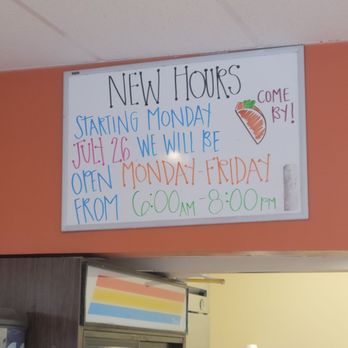 NEW HOURS
STARTING MONDAY
JULY 26 WE WILL BE
OPEN MONDAY-FRIDAY
FROM 6:00AM-8:00PM
COME
BY!